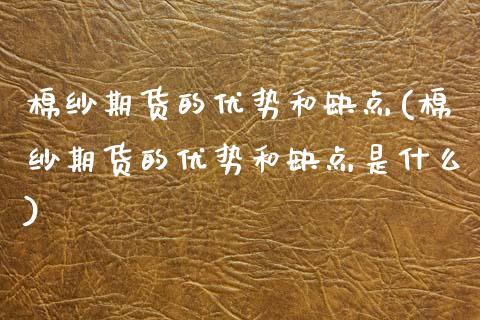 棉纱期货的优势和缺点(棉
纱期货的优势和缺点是什么
)